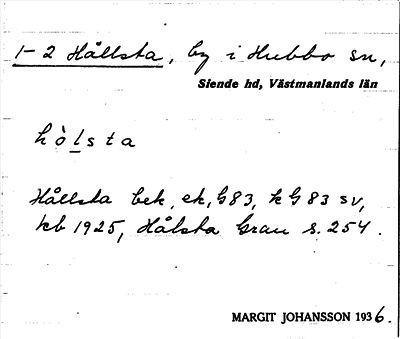 1-2 Hållsta, by i Hubbo sn,
Siende hd, Västmanlands län
hò̀lsta
Hållsta bek, ek, G83, k G 83 sv,
kb 1925, Hålsta Grau s. 254.
MARGIT JOHANSSON 1936.